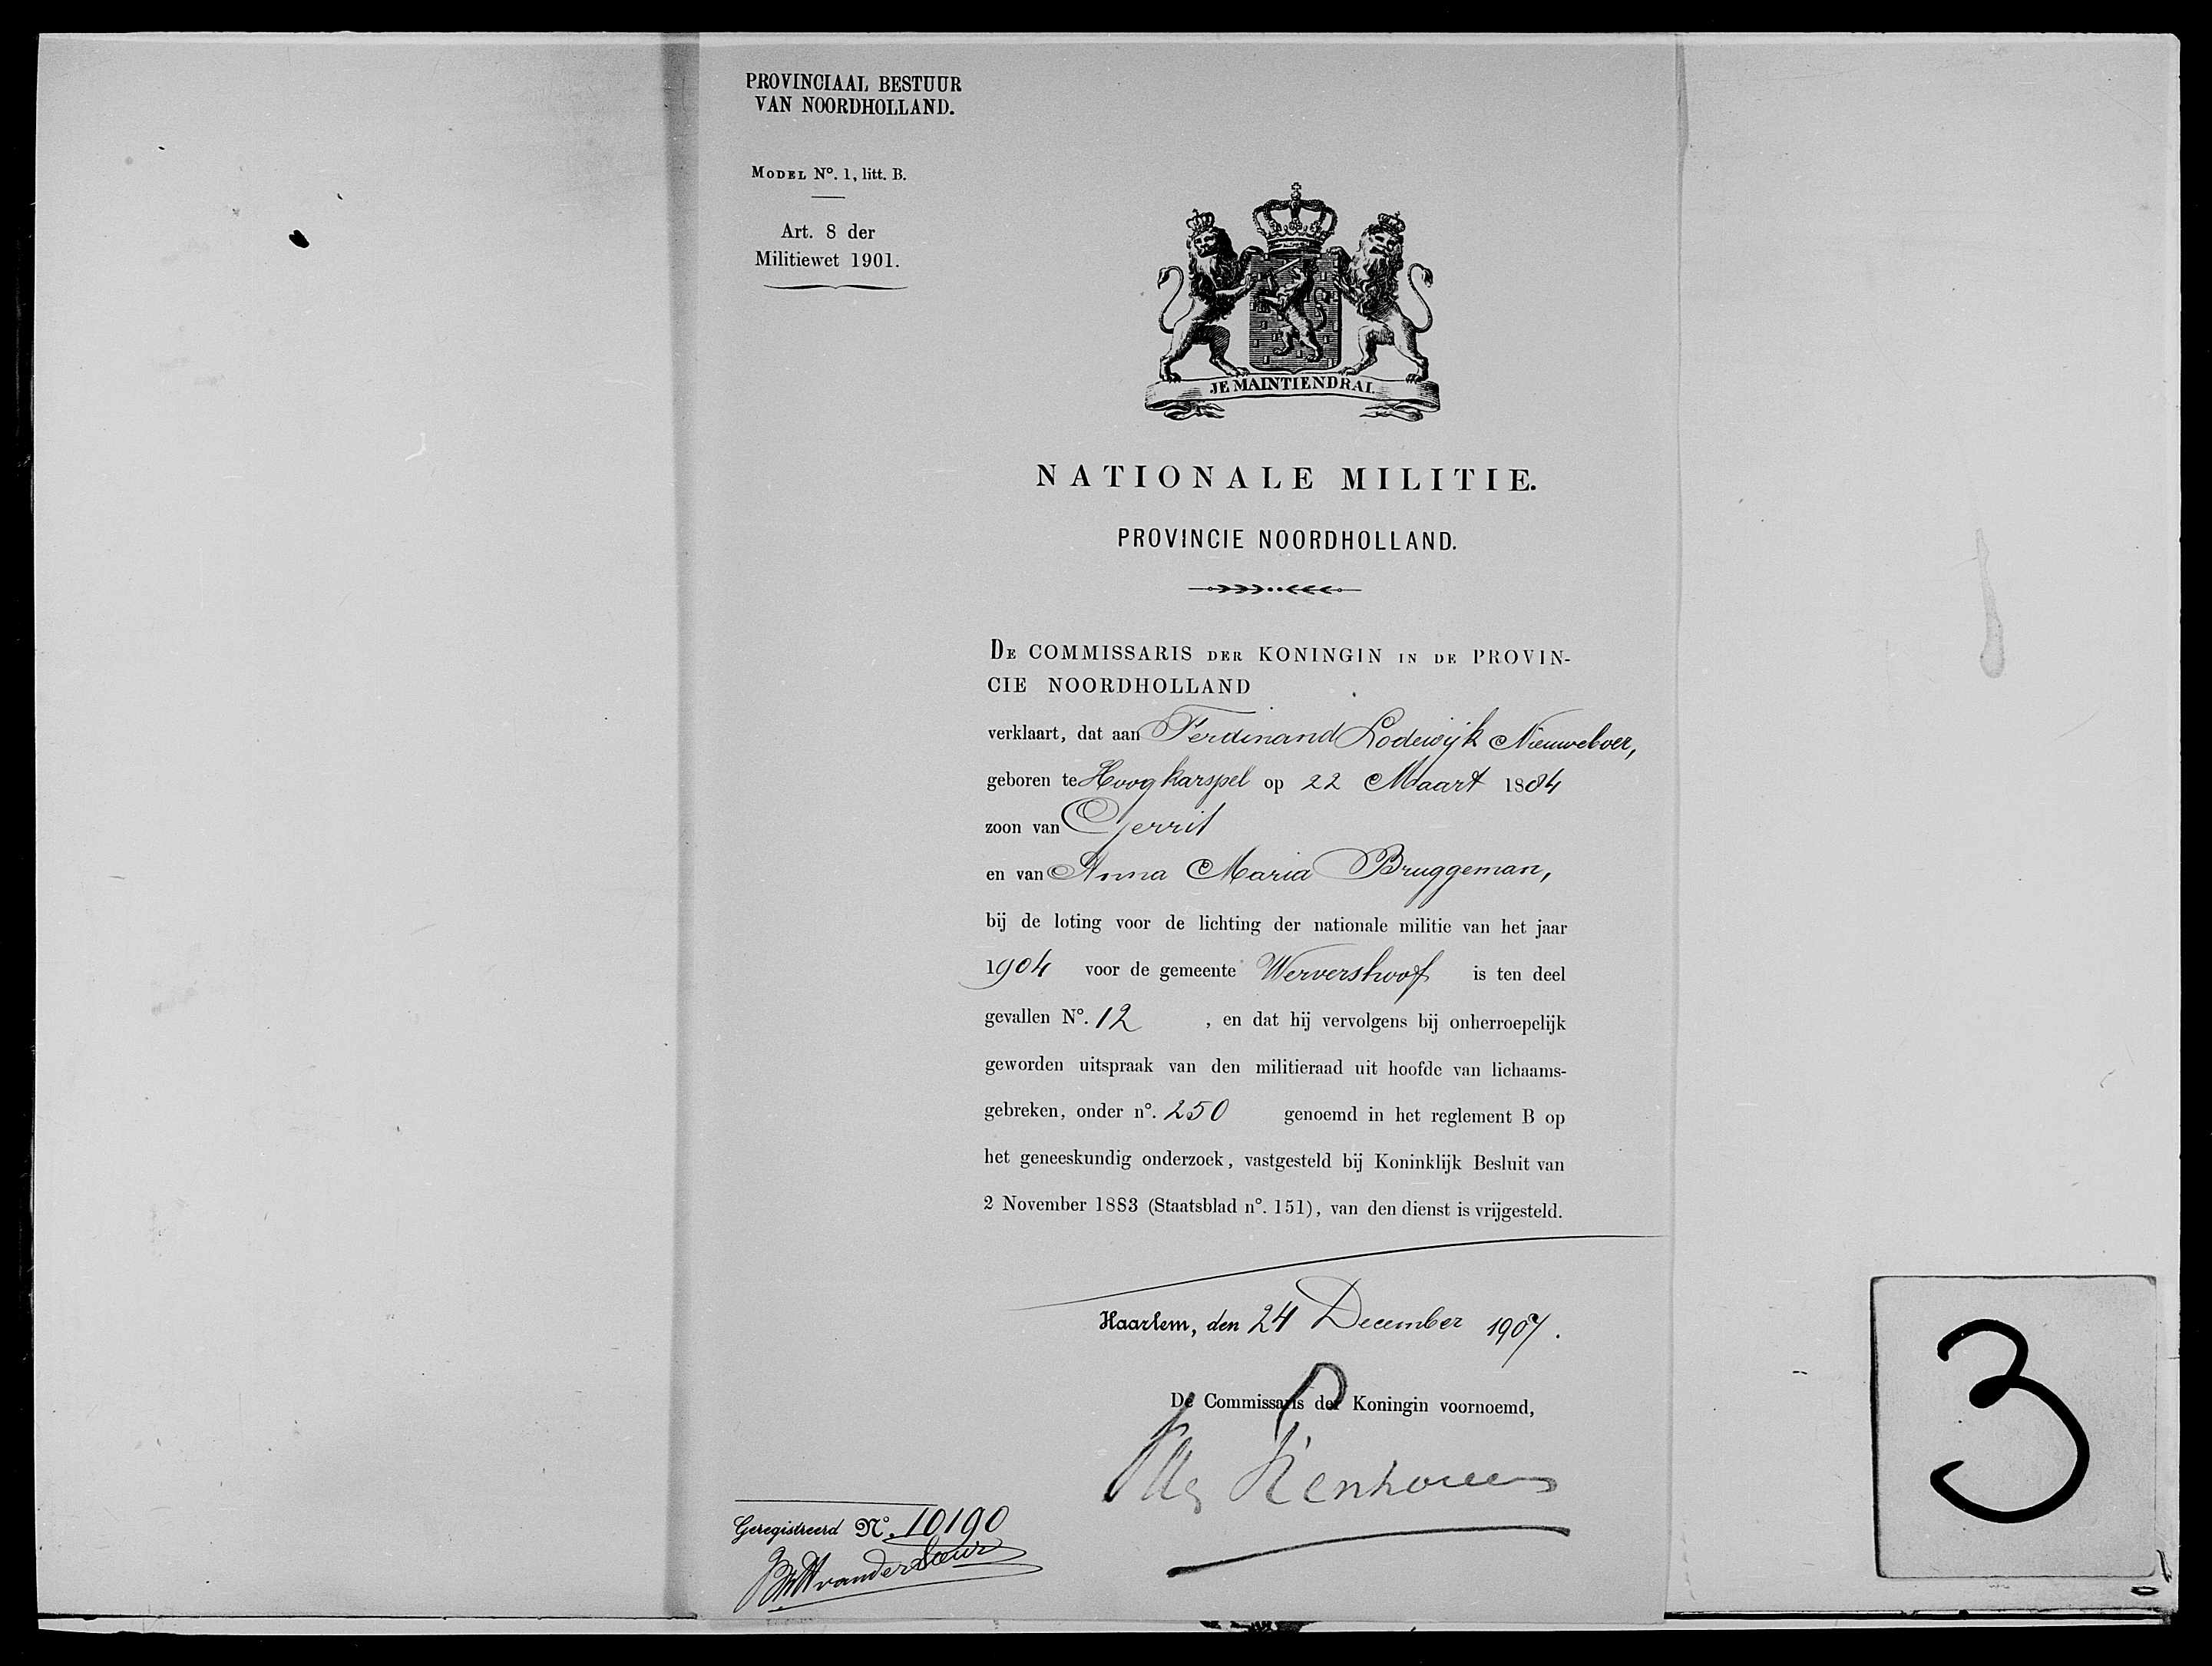 PROVINCIAAL BESTUUR
VAN NOORDHOLLAND.
MODEL N°. 1, litt. B.
Art. 8 der
Militiewet 1901.
JE MAINTIENDRAI
NATIONALE MILITIE.
PROVINCIE NOORDHOLLAND.
DE COMMISSARIS DER KONINGIN IN DE PROVIN-
CIE NOORDHOLLAND
verklaart, dat aan Ferdinand Lodewijk Nieuweboer,
geboren te Hoogkarspel op 22 Maart 1884
zoon van Gerrit
en van Anna Maria Bruggeman,
bij de loting voor de lichting der nationale militie van het jaar
1904 voor de gemeente Wervershoof is ten deel
gevallen N°. 12 , en dat hij vervolgens bij onherroepelijk
geworden uitspraak van den militieraad uit hoofde van lichaams-
gebreken, onder n°. 250 genoemd in het reglement B op
het geneeskundig onderzoek, vastgesteld bij Koninklijk Besluit van
2 November 1883 (Staatsblad n°. 151), van den dienst is vrijgesteld.
Haarlem, den 24 December 1907.
De Commissaris der Koningin voornoemd,
Geregistreerd N°. 10190
3